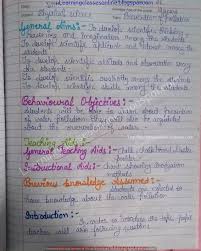 Learningclassesonline.blogspot.com
Physical science
Prevention of Pollution
General Aims:- To develop scientific thinking
reasoning and imagination among students
To develop scientific aptitude and interest among
students.
To develop scientific attitude and observation among
the students.
To develop scientific among the students
To develop scientific skills among the students
Behavioural Objectives:-
Students will be able to learn about prevention
of water pollution. They will also be acquainted
about the of water.
Teaching Aids:-
General Teaching Aids:- Chalk, Chalkboard, Duster
Pointer.
Instructional Aids:- chart showing
methods
Previous Knowledge Assumed:-
Students are expected to
have knowledge about the water pollution
Introduction:-
In order to introduce the topic, pupil
teacher will ask following questions